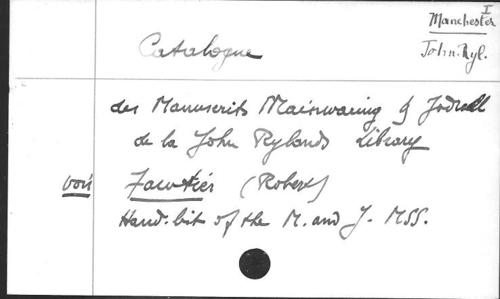 I
Manchester
John. Ryl.
Catalogue
des Manuscrits Mainwaring & Jodrell
de la John Rylands Library
voir Fawtier (Robert)
Hand-list of the M. and J. MSS.